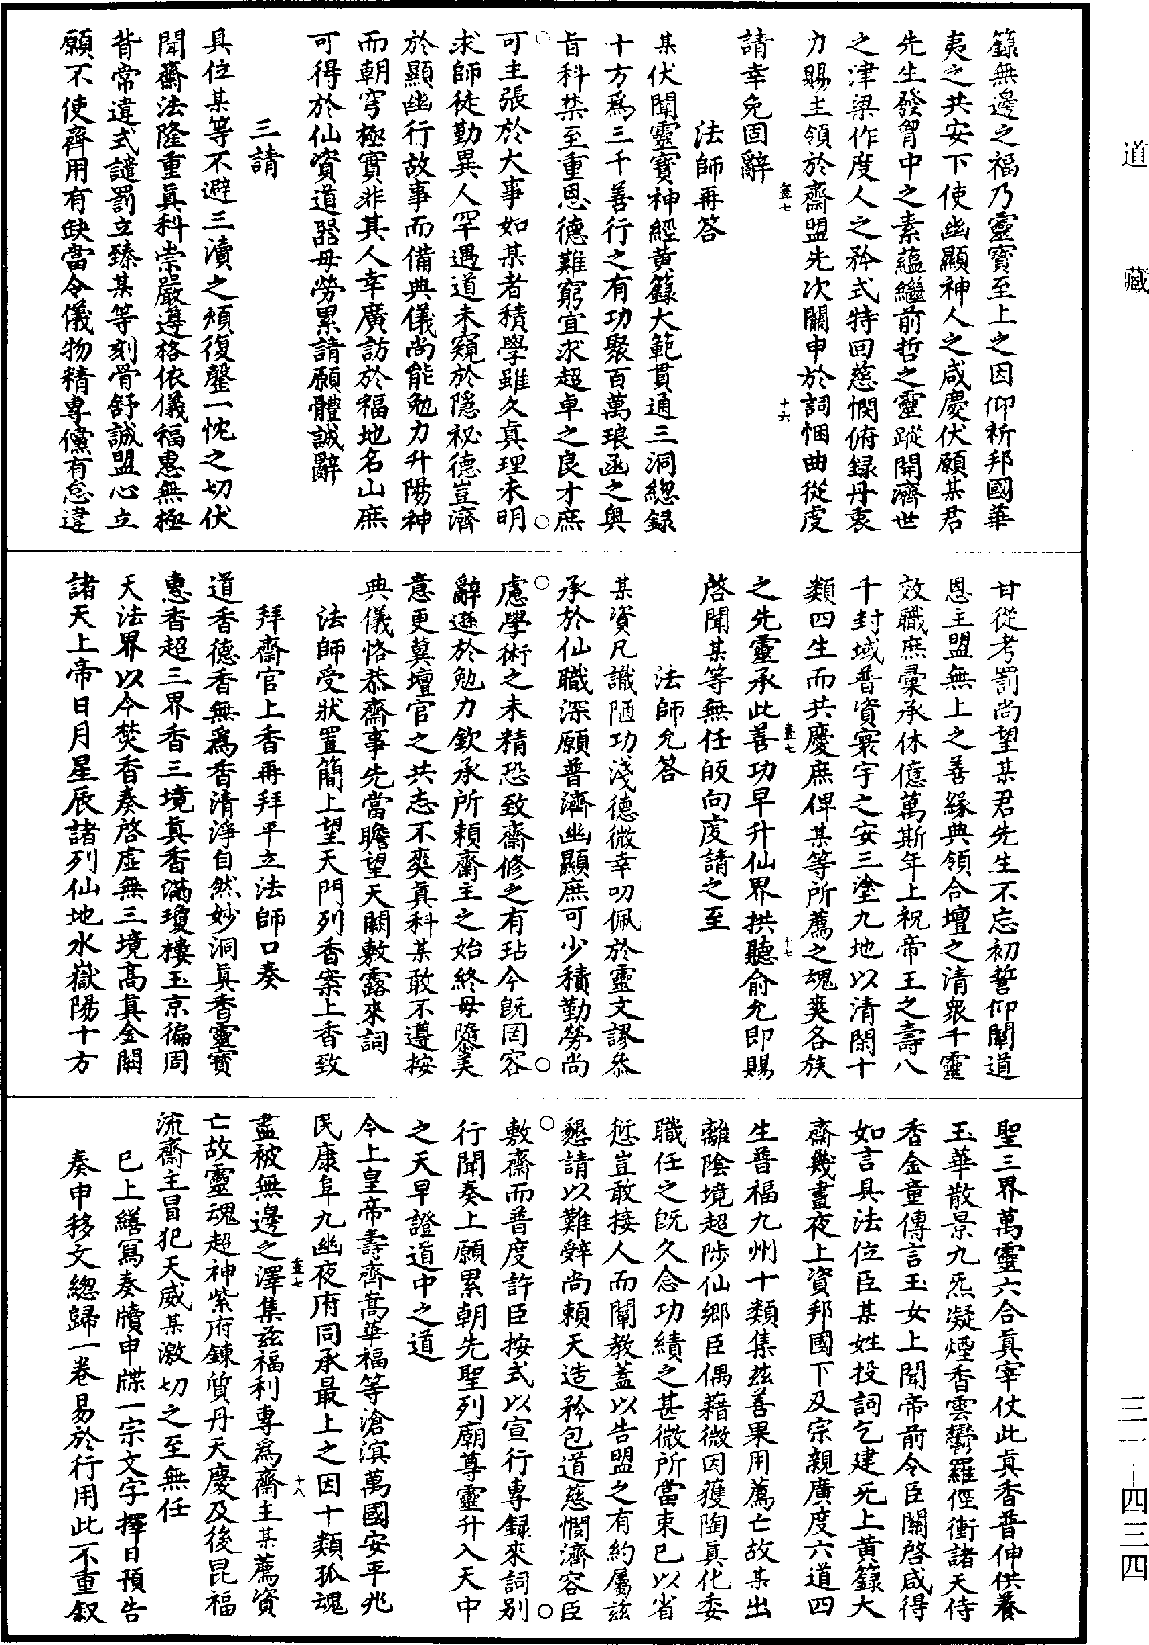 籙無邊之福乃靈寶至上之因仰祈邦國華
夷之共安下使幽顯神人之咸慶伏願某君
先生發胷中之素蘊繼前哲之靈蹤開濟世
之津梁作度人之矜式特回慈憫俯録丹衷
力賜主領於齋盟先次關申於詞悃曲從虔
壺七
十六
請幸免固辭
法師再答
某伏聞靈寶神經黃籙大範貫通三洞緫録
十方爲三千善行之有功聚百萬琅函之奥
旨科禁至重恩德難窮宜求超卓之良才庶
可主張於大事如某者積學雖久真理未明
求師徒勤異人罕遇道未窺於隱祕德豈濟
於顯幽行故事而備典儀尚能勉力升陽神
而朝穹極實非其人幸廣訪於福地名山庶
可得於仙資道器毋勞累請願體誠辭
三請
具位某等不避三瀆之煩復罄一忱之切伏
聞齋法隆重真科崇嚴遵格依儀福惠無極
背常違式譴罰立臻某等刻骨舒誠盟心立
願不使齊用有缺當令儀物精專儻有怠違
甘從考罰尚望某君先生不忘初誓仰闡道
恩主盟無上之善緣典領合壇之清衆千靈
效職庶彙承休億萬斯年上祝帝王之壽八
千封域普資寰宇之安三塗九地以清閑十
類四生而共慶庶俾某等所薦之魂爽各族
壺七
十七
之先靈承此善功早升仙界拱聽俞允即賜
啓聞某等無任皈向虔請之至
法師允答
某資凡識陋功淺德微幸叨佩於靈文謬忝
承於仙職深願普濟幽顯庶可少積勤勞尚
慮學術之未精恐致齋修之有玷今旣罔容
辭遜於勉力欽承所賴齋主之始終毋隳美
意更冀壇官之共志不爽真科某敢不遵按
典儀恪恭齋事先當瞻望天闕敷露來詞
法師受狀置簡上望天門列香案上香致
拜齋官上香再拜平立法師口奏
道香德香無爲香清淨自然妙洞真香靈寶
惠香超三界香三境真香滿瓊樓玉京徧周
天法界以今焚香奏啓虛無三境高真金闕
諸天上帝日月星辰諸列仙地水嶽陽十方
聖三界萬靈六合真宰仗此真香普伸供養
玉華散景九炁凝煙香雲鬱羅徑衝諸天侍
香金童傳言玉女上聞帝前令臣關啓咸得
如言具法位臣某姓投詞乞建旡上黃籙大
齋幾晝夜上資邦國下及宗親廣度六道四
生普福九州十類集兹善果用薦亡故某出
離陰境超陟仙鄉臣偶藉微因獲陶真化委
職任之旣久念功績之甚微所當束已以省
愆豈敢接人而闡教蓋以告盟之有約屬兹
懇請以難辤尚賴天造矜包道慈憫濟容臣
敷齋而普度許臣按式以宣行專録來詞別
行聞奏上願累朝先聖列廟尊靈升入天中
之天早證道中之道
今上皇帝壽齊嵩華福等滄溟萬國安平兆
民康阜九幽夜府同承最上之因十類孤魂
壺七
十八
盡被無邊之澤集兹福利專爲齋主某薦資
亡故靈魂超神紫府鍊質丹天慶及後昆福
流齋主冒犯天威某激切之至無任
已上繕寫奏牘申牒一宗文字擇日預告
奏申移文緫歸一卷易於行用此不重叙
道藏
三一—四三四